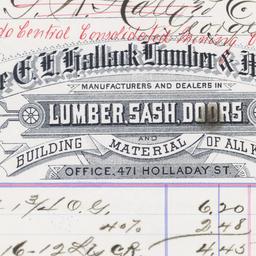 Central Consolidated Mining
C. F. Hallack Lumber & M
MANUFACTURERS AND DEALERS IN
LUMBER, SASH, DOORS
AND
BUILDING MATERIAL OF ALL K
OFFICE, 471 HOLLADAY ST.
1 3/4 O.G. 6,20
40% 2,48
16-12 4,45